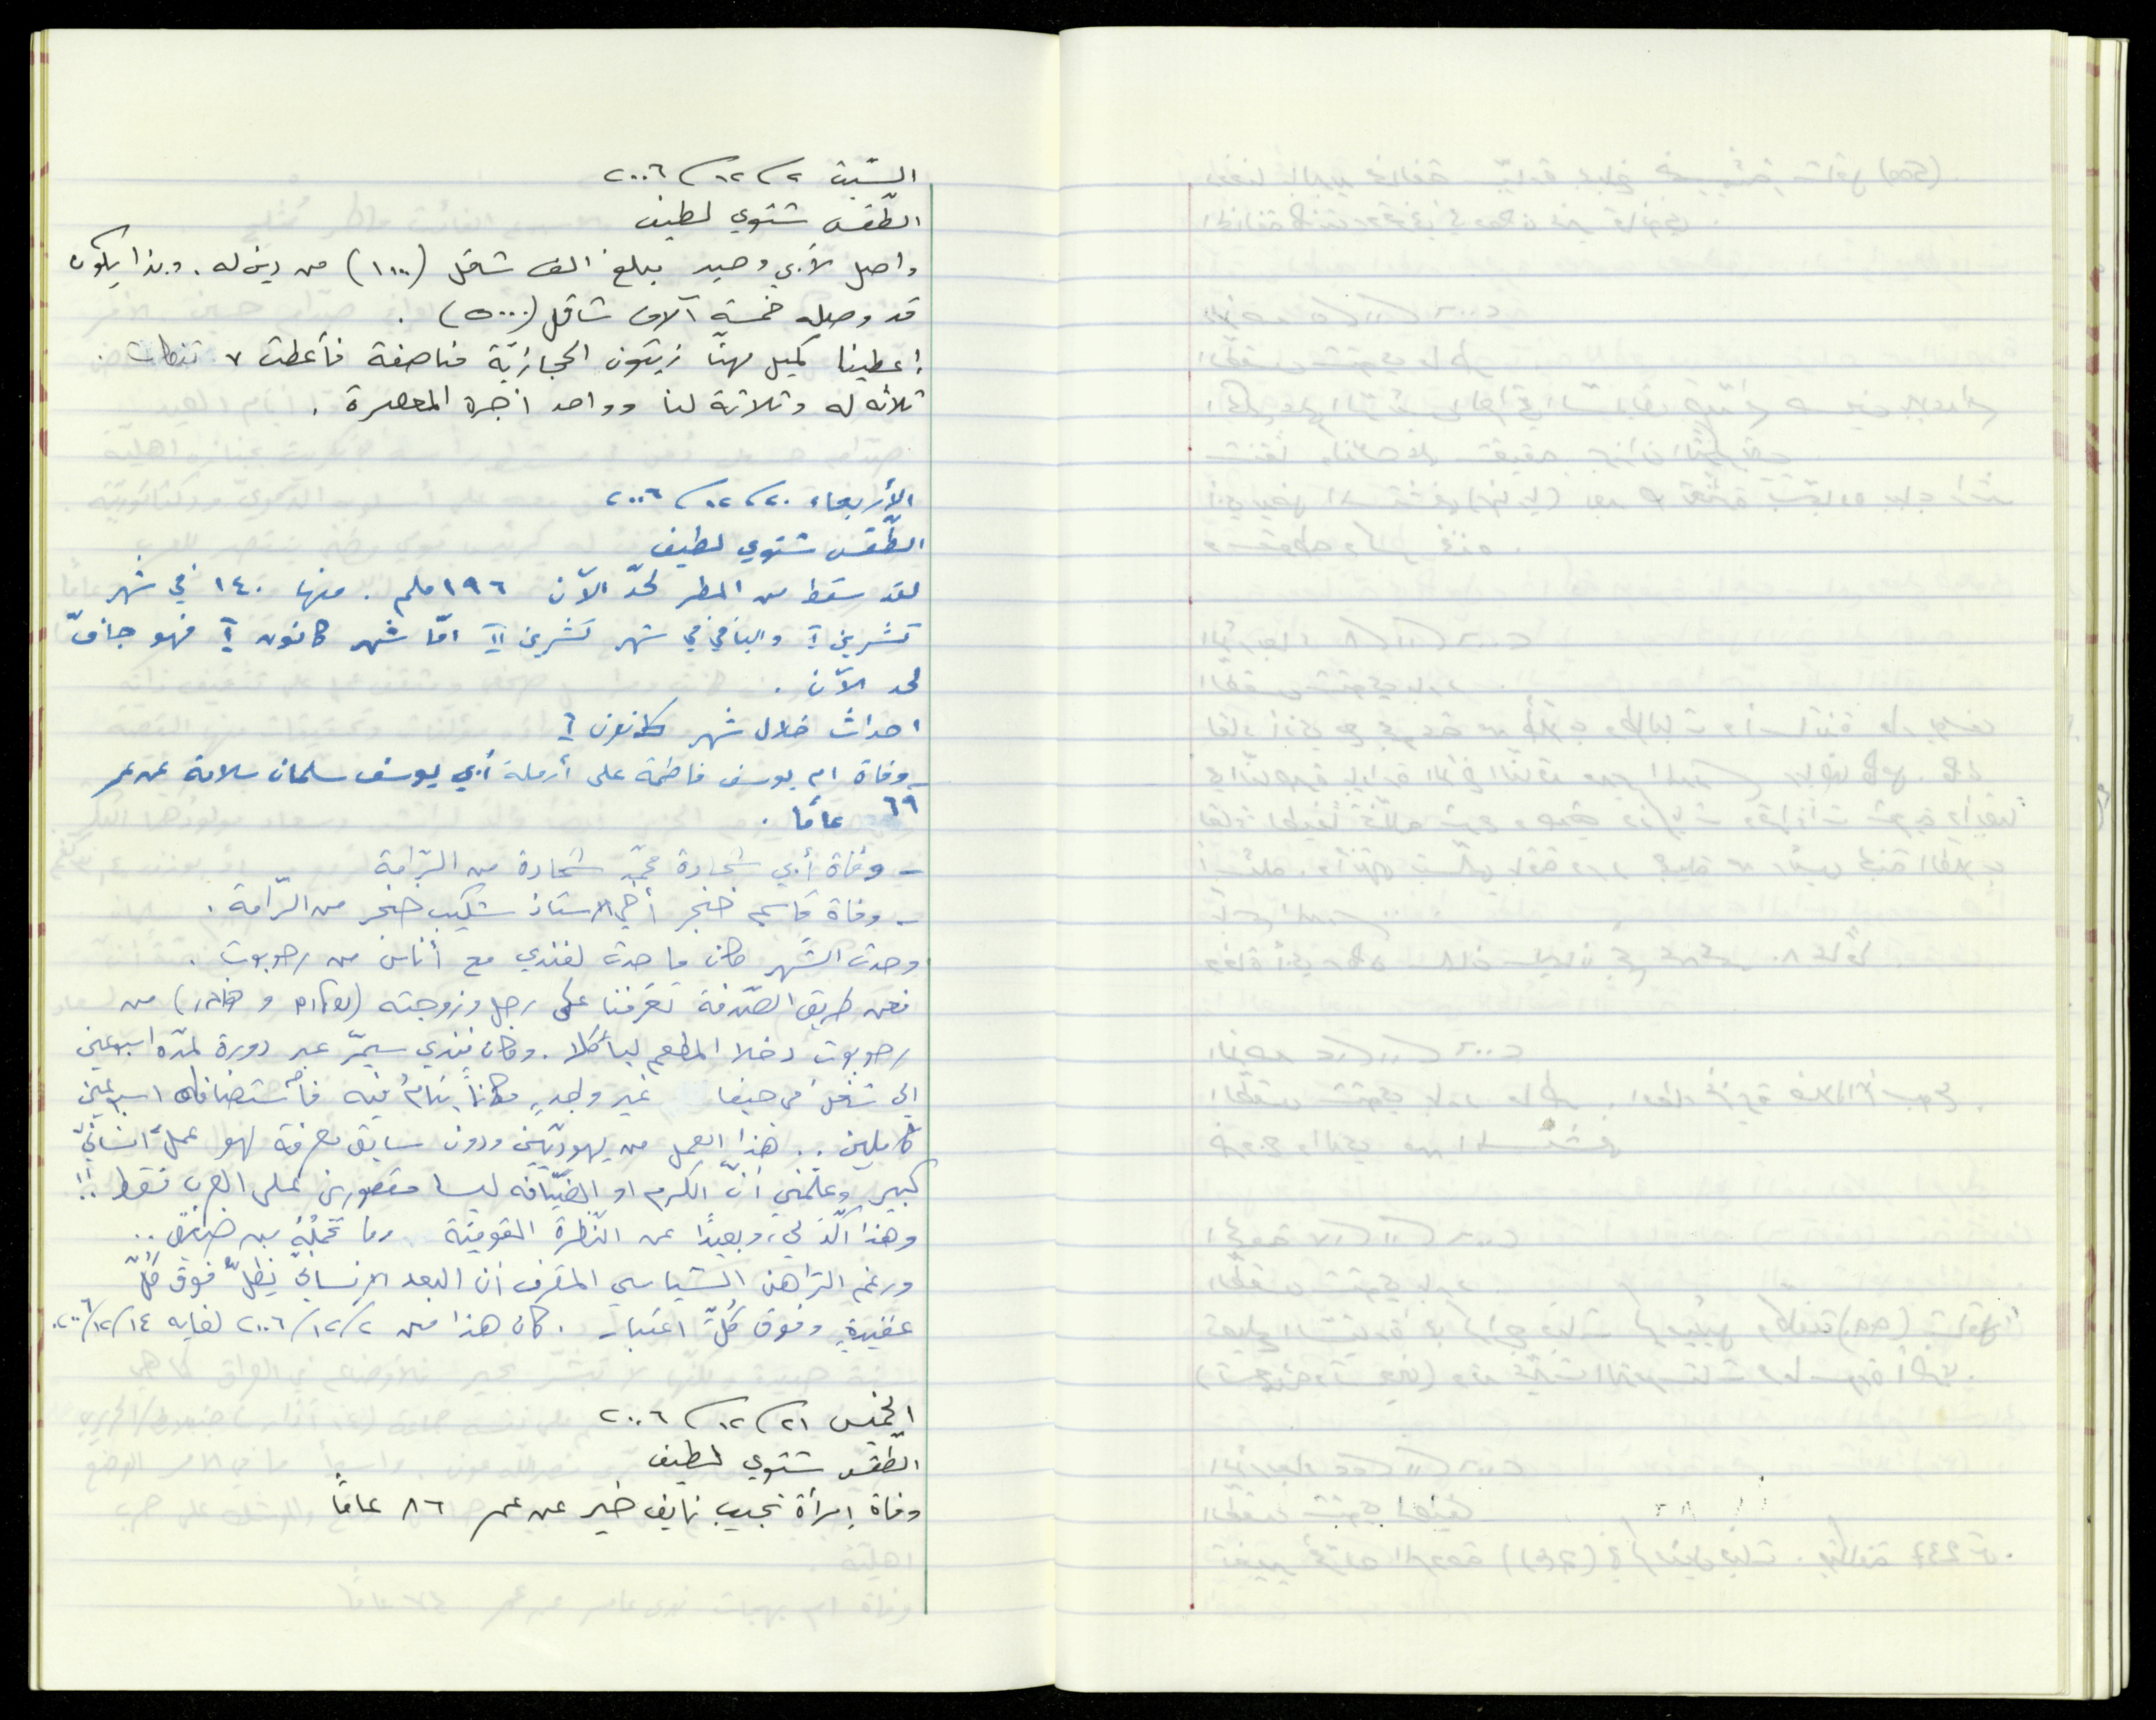 السّبت ٢/١٢/٢٠٠٦
الطّقس شتوي لطيف
واصل لأبي وحيد مبلغ الف شاقل (١٠٠٠) من دين له. وبذا يكون
قد وصله خمسة آلاف شاقل (٥٠٠٠).
أعطينا كميل مهنّا زيتون الحجازيّة مناصفة فأعطت ٧ تنكات.
ثلاثه له وثلاثة لنا وواحد اجرة المعصرة.
الأربعاء ٢٠/١٢/٢٠٠٦
الطّقس شتوي لطيف
لقد سقط من المطر لحدّ الآن ١٩٦ ملم. منها ١٤٠ في شهر
تشرين I والباقي في شهر تشرين II امّا شهر كانون I فهو جافّ
لحد الآن.
احداث خلال شهر كانون I
- وفاة ام يوسف فاطمة علي أرملة أبي يوسف سلمان سلامة عن عمر
٦٩ عامًا.
- وفاة أبي شحادة محمّد شحادة من الرّامة
- وفاة قاسم خنجر أخي الاستاذ شكيب خنجر من الرّامة.
وحدث الشّهر كان ما حدث لفندي مع أناس من رحوبوت.
فعن طريق الصّدفة تعرّفنا على رجل وزوجته من
رحوبوت دخلا المطعم ليأكلا. وكان فندي سيمرّ عبر دورة لمدّه اسبوعين
الى شغل في حيفا غير واجدٍ مكانًا ينام فيه فأستضافاه اسبوعين
كاملين.. هذا العمل من يهوديّين ودون سابق معرفة لهو عملٌ انسانيّ
كبير وعلّمني انّ الكرم او الضّيافه ليسا مقصورين على العرب فقط..!
وهذا اكّد لي، وبعيدًا عن النّظرة القوميّة وما تحمله من ..
ورغم الرّاهن السّياسي المقرف ان البعد الانساني يظلّ فوق كلّ
عقيدةٍ وفوق كُلّ اعتبار. كان هذا من ٢/١٢/٢٠٠٦ لغايه ١٤/١٢/٢٠٠٦.
الخميس ٢١/١٢/٢٠٠٦
الطّقس شتوي لطيف
وفاة إمرأة نجيب نايف خير عن عمر ٨٦ عامًا